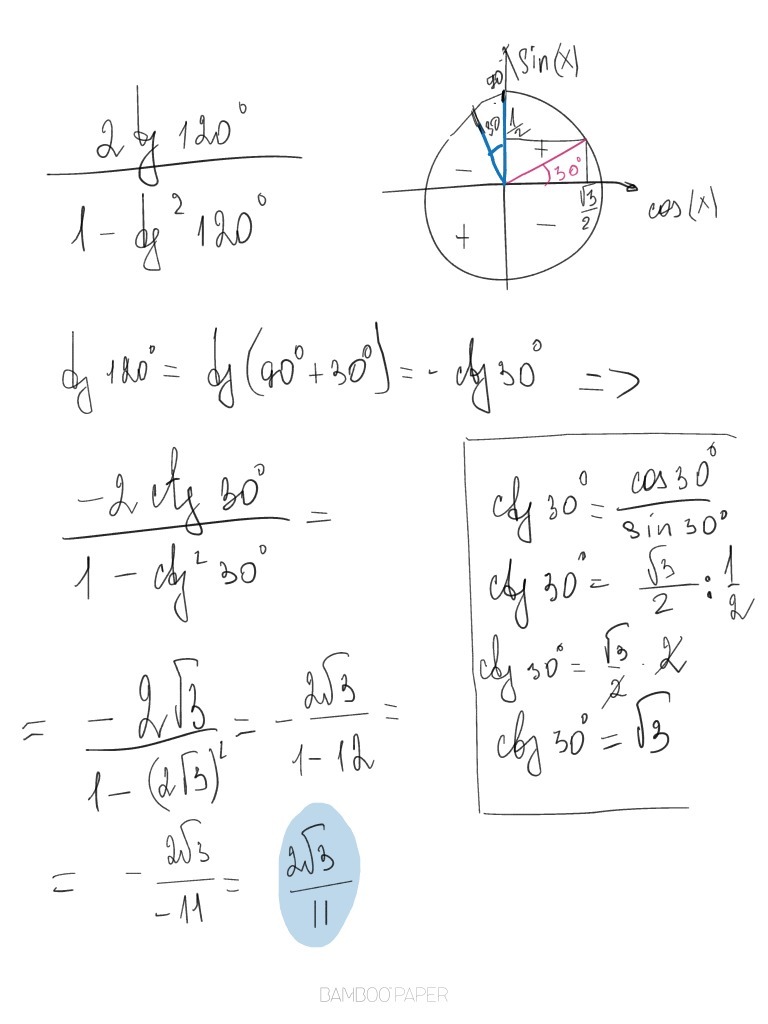 2 tg 120°
1 - tg² 120°
sin(x)
90
30
1/2
+
-
30°
√3/2
cos(x)
+
-
tg 120° = tg(90° + 30°) = - ctg 30° =>
-2 ctg 30°
1 - ctg² 30°
=
ctg 30° = cos 30° / sin 30°
ctg 30° = √3/2 : 1/2
ctg 30° = √3/2 · 2
ctg 30° = √3
= -2√3 / 1 - (2√3)² = - 2√3 / 1 - 12 =
= - 2√3 / -11 = 2√3 / 11
BAMBOO PAPER